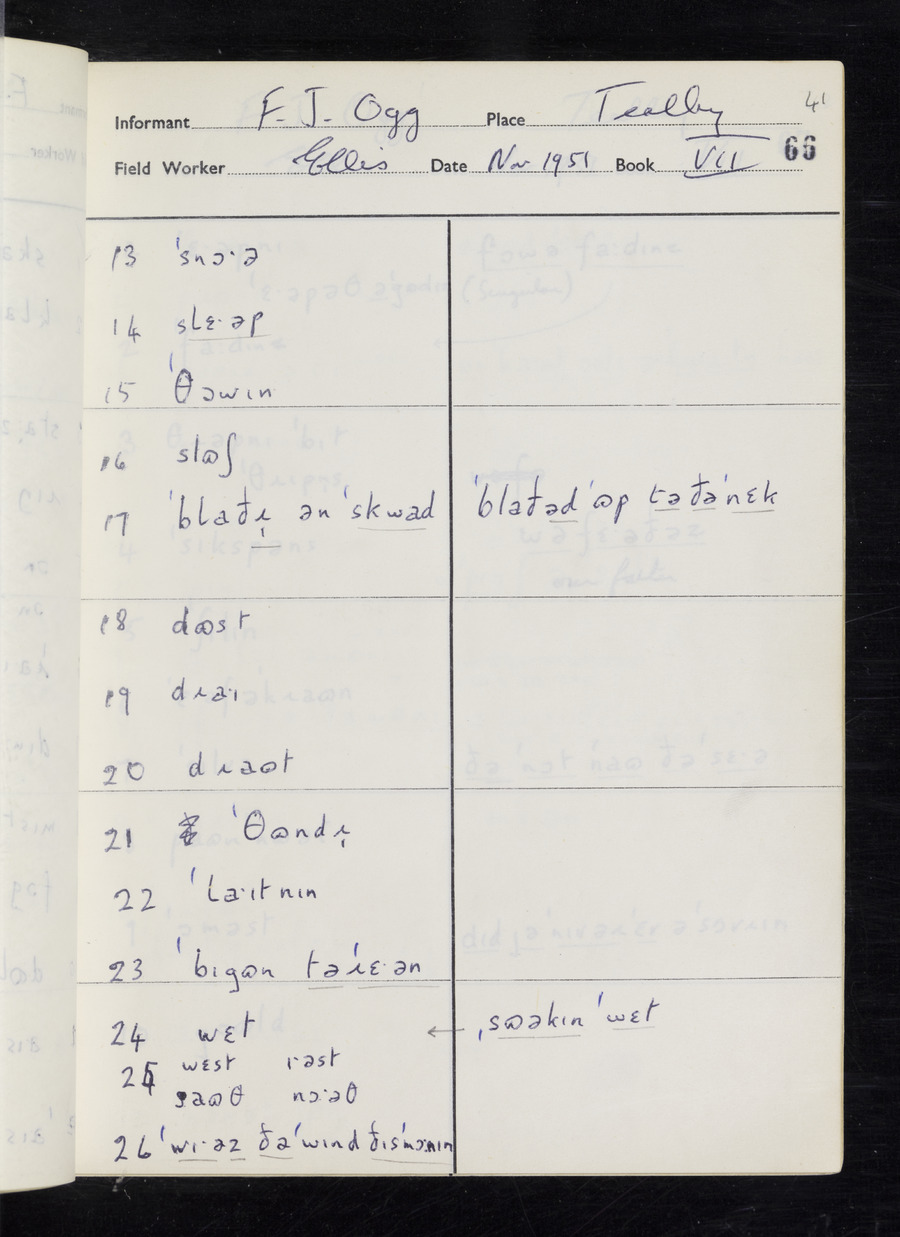 41
Informant F. J. Ogg Place Tealby
66
Field Worker Ellis Date Nov 1951 Book VII
13 ˈsnɔ·ə
14 slɛ·əp
15 ˈθɔwɪn
16 slɷʃ
17 ˈblaðɹ̩ ən ˈskwad ˈblaðəd ˈɷp tə ðə ˈnɛk
18 dɷst
19 dɹa·ɪ
20 dɹaɷt
21 ˈθɷndɹ̩
22 ˈla·ɪtnɪn
23 ˈbɪgɷn tə ˈɹɛ·ən
24 wɛt ← ˌsɷəkɪn ˈwɛt
25 wɛst i·əst
saɷθ nɔ·əθ
26 ˈwɪ·əz ðə ˈwɪnd ðɪs ˈmɔ:nɪn